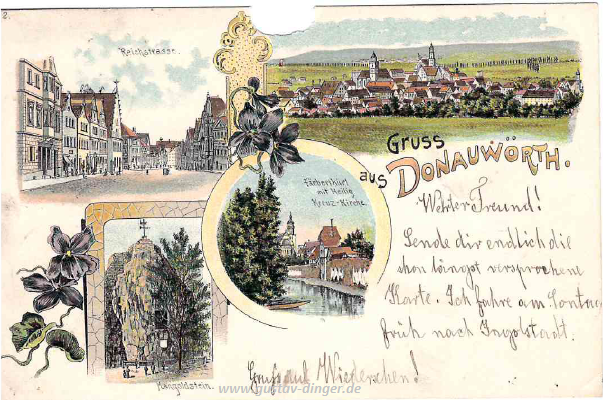 2.
Reichstrasse.
Gruss
aus DONAUWÖRTH.
Färberthörl
mit Heilig
Kreuz-Kirche
Mangoldstein.
Werter Freund!
Sende dir endlich die
schon längst versprochene
Karte. Ich fahre am Sonntag
früh nach Ingolstadt.
Gruß auf Wiedersehen!
www.gustav-dinger.de